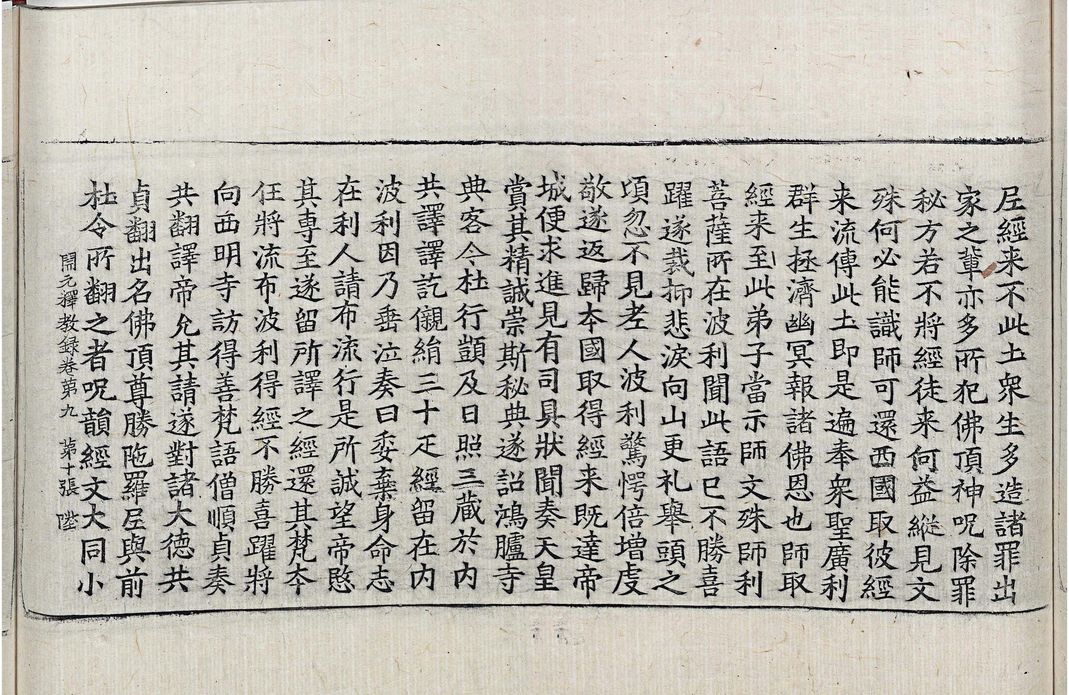 尼經来不此土衆生多造諸罪出
家之輩亦多所犯佛頂神呪除罪
秘方若不將經徒来何益縦見文
殊何必能識師可還西國取彼經
来流傳此土即是遍奉衆聖廣利
群生拯濟幽冥報諸佛恩也師取
經来至此弟子當示師文殊師利
菩薩所在波利聞此語已不勝喜
躍遂裁抑悲淚向山更礼舉頭之
頃忽不見老人波利驚愕倍增虔
敬遂返歸本國取得經来既達帝
城便求進見有司具狀聞奏天皇
賞其精誠崇斯秘典遂詔鴻臚寺
典客令杜行顗及日照三藏於內
共譯譯訖儭絹三十疋經留在內
波利因乃垂泣奏曰委棄身命志
在利人請布流行是所誠望帝愍
其專至遂留所譯之經還其梵本
任將流布波利得經不勝喜躍將
向西明寺訪得善梵語僧順貞奏
共翻譯帝允其請遂對諸大德共
貞翻出名佛頂尊勝陁羅尼與前
杜令所翻之者呪韻經文大同小
開元釋教録卷第九 第十張 陞